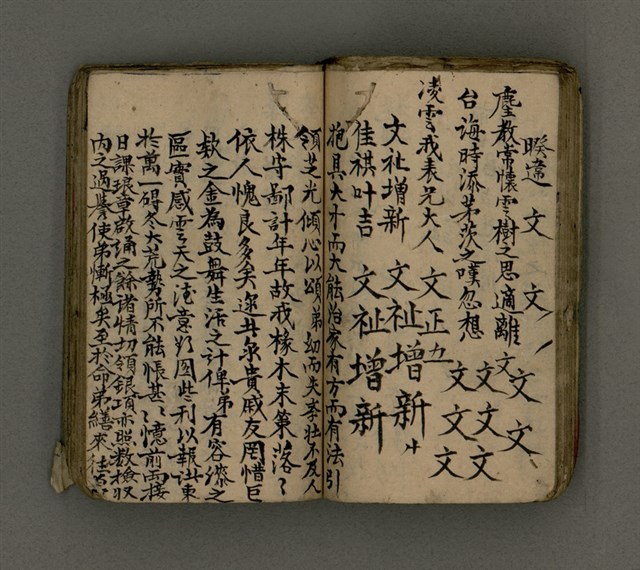 暌違 文 文
塵教常懷雲樹之思適離文文
台誨時添茅茨之嘆忽想文文文
凌雲我表兄大人文正九文文文
文祉增新 文祉增新
佳祺叶吉 文祉增新
抱具大才而大能治家有方而有法引
領芝光傾心以頌弟幼而失李壯不及人
株守鄙計年年故戒椽木末第落々
依人愧良多矣逆其尔貴戚友罔惜巨
欵之金為鼓舞生活之計俾弟有容漆之
區實感雲天之注意於因此刊以報詎東
於萬一碍冬大荒勢所不能悵甚々憶前面接
日課琅章啟誦之餘諸情切領銀項亦照数檢收
内之過譽使弟慚極矣至於命弟繕來